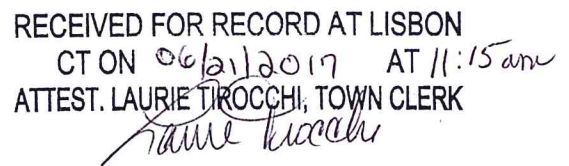 RECEIVED FOR RECORD AT LISBON
CT ON 06/21/2017 AT 11:15 am
ATTEST. LAURIE TIROCCHI, TOWN CLERK
Laurie Tirocchi